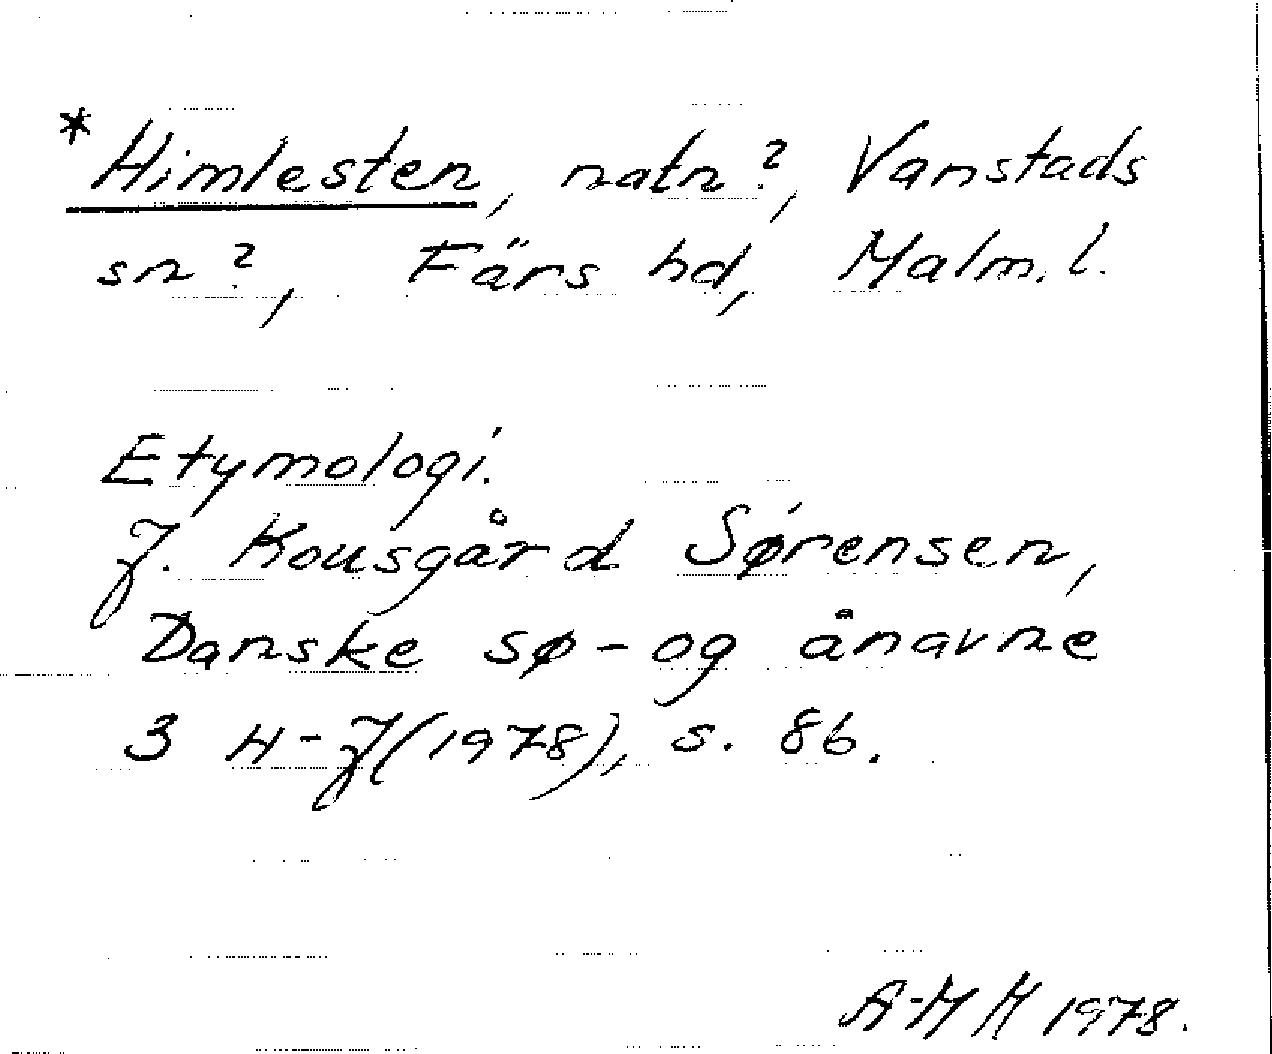 *Himlesten, natn?, Vanstads
sn?, Färs hd, Malm.l.
Etymologi.
J. Kousgård Sørensen,
Danske sø- og ånavne
3 H-J (1978), s. 86.
A-MM 1978.